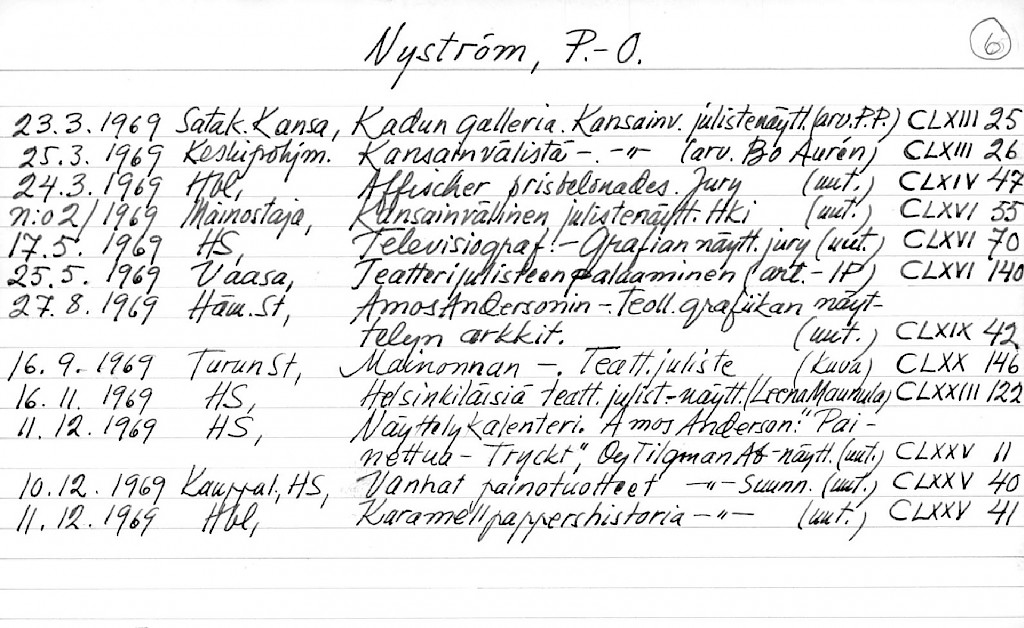 Nyström, P.-O. 6
23.3.1969 Satak.Kansa, Kadun galleria. Kansainv. julistenäytt.(arv.P.P.) CLXIII 25
25.3.1969 Keskipohjm. Kansainvälistä -. -"- (arv. Bo Aurén) CLXIII 26
24.3.1969 Hbl, Affischer prisbelönades. Jury (uut.) CLXIV 47
n:o 2/1969 Mainostaja, Kansainvälinen julistenäytt. Hki (uut.) CLXVI 55
17.5.1969 HS, Televisiograf.- Grafian näytt. jury (uut.) CLXVI 70
25.5.1969 Vaasa, Teatterijulisteen palaaminen (art.-IP) CLXVI 140
27.8.1969 Häm.St, Amos Andersonin - Teoll.grafiikan näyt-
telyn arkkit. (uut.) CLXIX 42
16.9.1969 TurunSt, Mainonnan -. Teatt.juliste (kuva) CLXX 146
16.11.1969 HS, Helsinkiläisiä teatt.julist-näytt.(Leena Maunula) CLXXIII 122
11.12.1969 HS, Näyttelykalenteri. Amos Anderson: "Pai-
nettua - Tryckt", Oy Tilgman Ab-näytt.(uut.) CLXXV 11
10.12.1969 Kauppal., HS, Vanhat painotuotteet -"- Suunn. (uut.) CLXXV 40
11.12.1969 Hbl, Karamellpappershistoria -"- (uut.) CLXXV 41